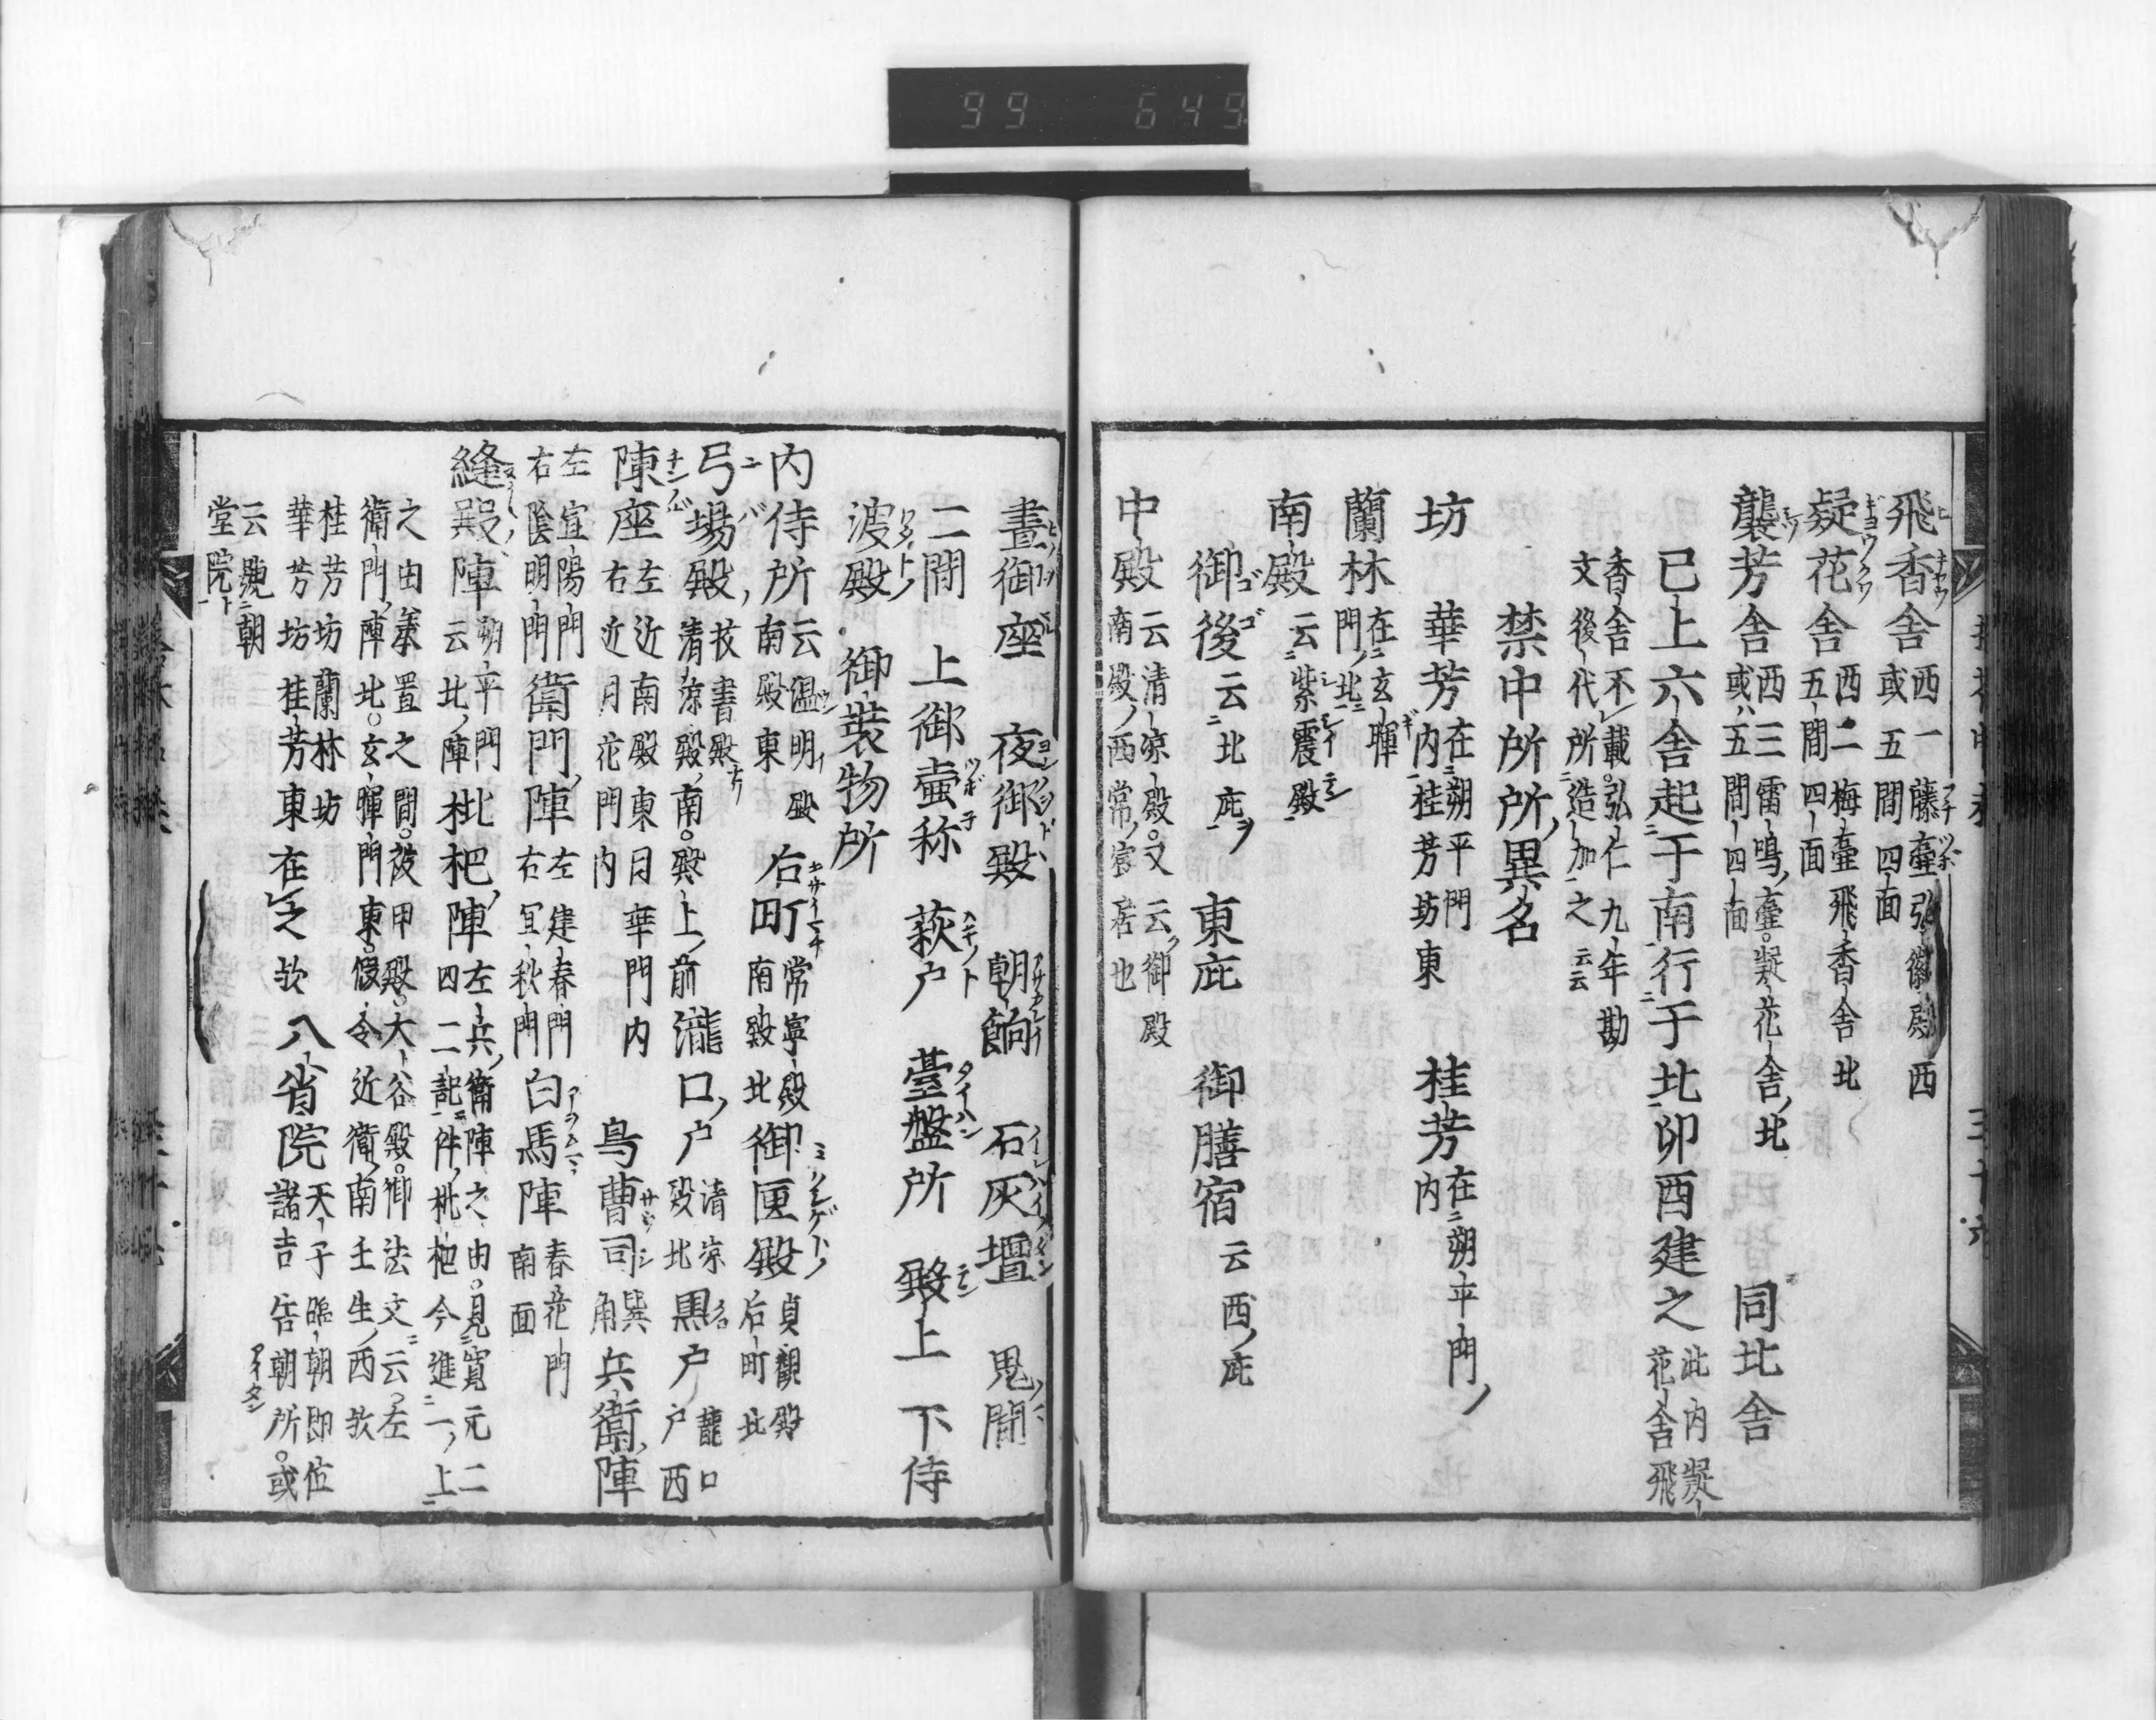 99 649
飛香舎 西一 藤壺 弘徽殿西
或五間四面
凝花舎 西二 梅壺 飛香舎北
五間四面
襲芳舎 西三 雷鳴壺。凝花舎ノ北
或ハ五間四面
同北舎
已上六舎起于南行于北卯酉建之 此内凝
花舎飛
香舎不載。弘仁九年勘
文後代所造加之云云
禁中所所ノ異名
坊 華芳 在朔平門
内桂芳坊東
桂芳 在朔平門ノ
内
蘭林 在玄暉
門ノ北
南殿 云紫震殿
御後 云北庇ヲ 東庇 御膳宿 云西ノ庇
中殿 云清凉殿。又云御殿
南殿ノ西常ノ宸居也
晝御座 夜御殿 朝餉 石灰壇 鬼間
二間 上御壺称 萩戸 臺盤所 殿上 下侍
渡殿 御装物所
内侍所 云温明殿
南殿東
后町 常寧殿
南殿北
御匣殿 貞觀殿
后町北
弓場殿 技書殿
清凉殿ノ南。殿上ノ前
瀧口ノ戸 清凉
殿北
黒戸 瀧口
戸西
陣座 左近南殿東日華門内
右近月花門内
鳥曹司 巽
角
兵衛ノ陣
左 宣陽門
右 陰明門
衛門ノ陣 左建春門
右宜秋門
白馬陣 春花門
南面
縫殿陣 朔平門
云北ノ陣
枇杷陣 左兵衛陣之由。見寛元二
四二記件ノ枇杷今進一ノ上
之由兼置之間。被甲殿。大谷殿。御法文云。左
衛門ノ陣北。玄暉門ノ門東。假令近衛ノ南壬生ノ西欤
桂芳坊蘭林坊
華芳坊桂芳東
在之欤 八省院 天子臨朝即位
諸吉告朝所。或
云號朝
堂院